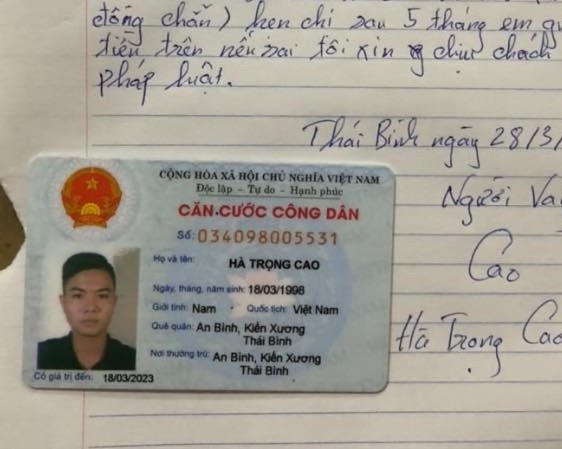 đồng chẵn) hẹn chị sau 5 tháng em
tiền trên nếu sai tôi xin chịu trách
pháp luật.
Thái Bình ngày 28/3/
Người Va
Cao
Hà Trọng Cao
CỘNG HÒA XÃ HỘI CHỦ NGHĨA VIỆT NAM
Độc lập - Tự do - Hạnh phúc
CĂN CƯỚC CÔNG DÂN
Số: 034098005531
Họ và tên: HÀ TRỌNG CAO
Ngày, tháng, năm sinh: 18/03/1998
Giới tính: Nam Quốc tịch: Việt Nam
Quê quán: An Bình, Kiến Xương
Thái Bình
Nơi thường trú: An Bình, Kiến Xương
Thái Bình
Có giá trị đến: 18/03/2023